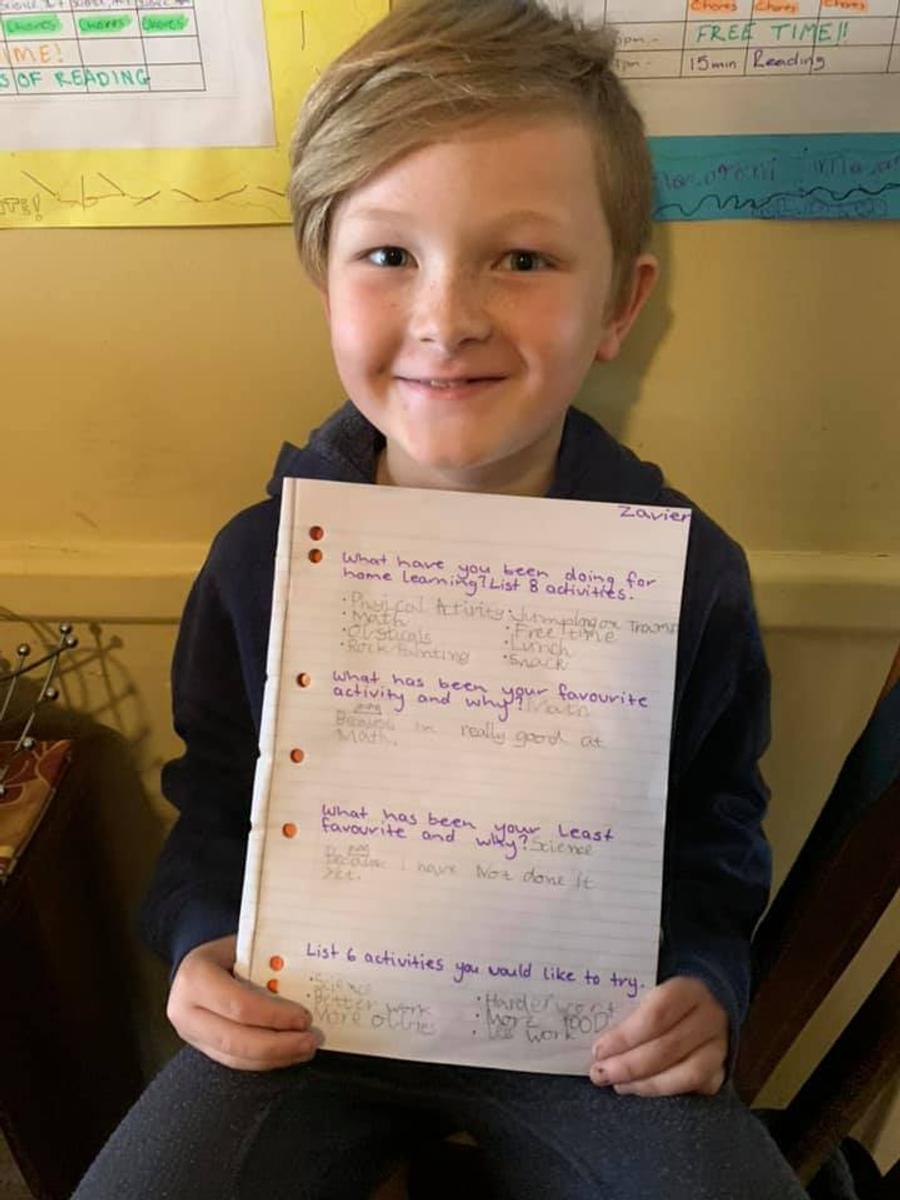 Chores Chores Chores
IME!
S OF READING
OTE!
Chores Chores Chores
5pm - FREE TIME!!
pm - 15min Reading
Zavier
What have you been doing for
home learning? List 8 activities.
• Physical Activity • Jumping on Tramp
• Math • Free time
• Obsticals • Lunch
• Rock Painting • Snack
What has been your favourite
activity and why? Math
im really good at
Math.
What has been your Least
favourite and why? Science
Because I have Not done it
yet.
List 6 activities you would like to try.
• Science • Harder
• Better work • More FOOD
• More • work